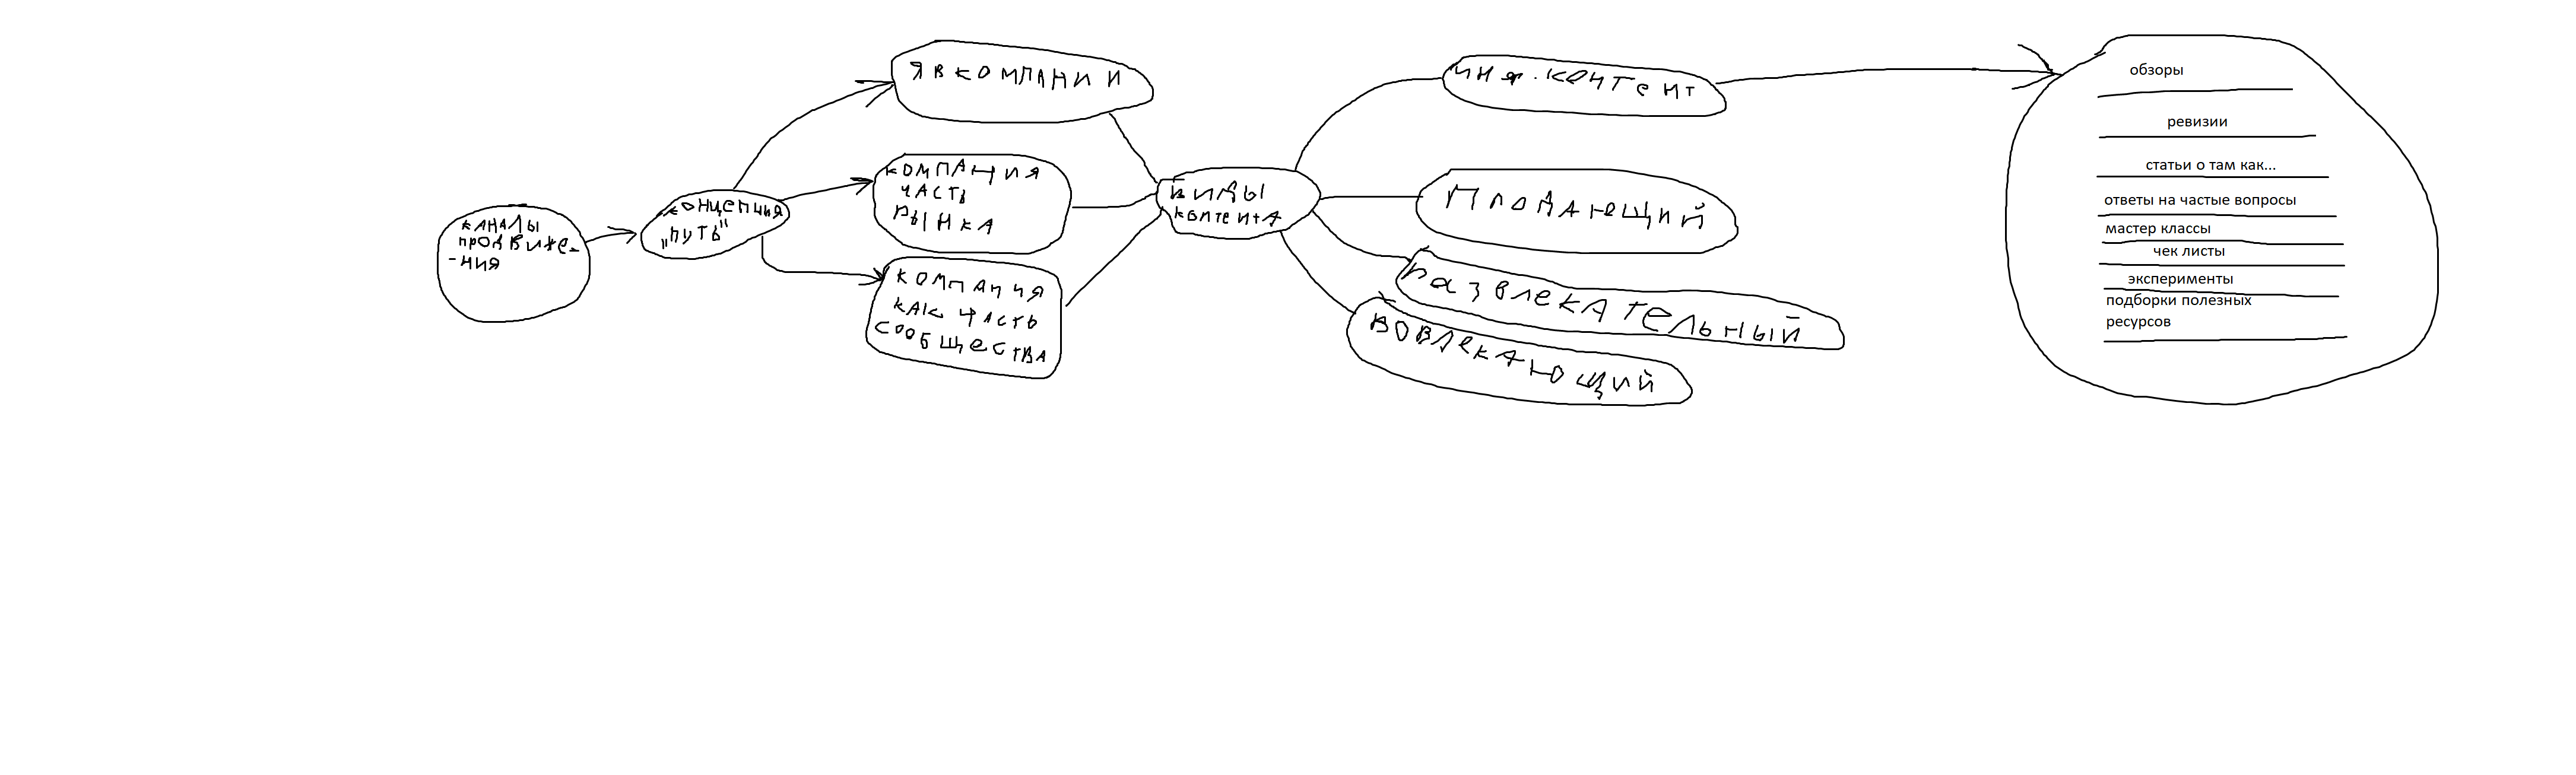 каналы
продвиже-
-ния
концепция
"путь"
я в компании
компания
часть
рынка
компания
как часть
сообщества
виды
контента
инф. контент
продающий
развлекательный
вовлекающий
обзоры
ревизии
статьи о там как...
ответы на частые вопросы
мастер классы
чек листы
эксперименты
подборки полезных
ресурсов